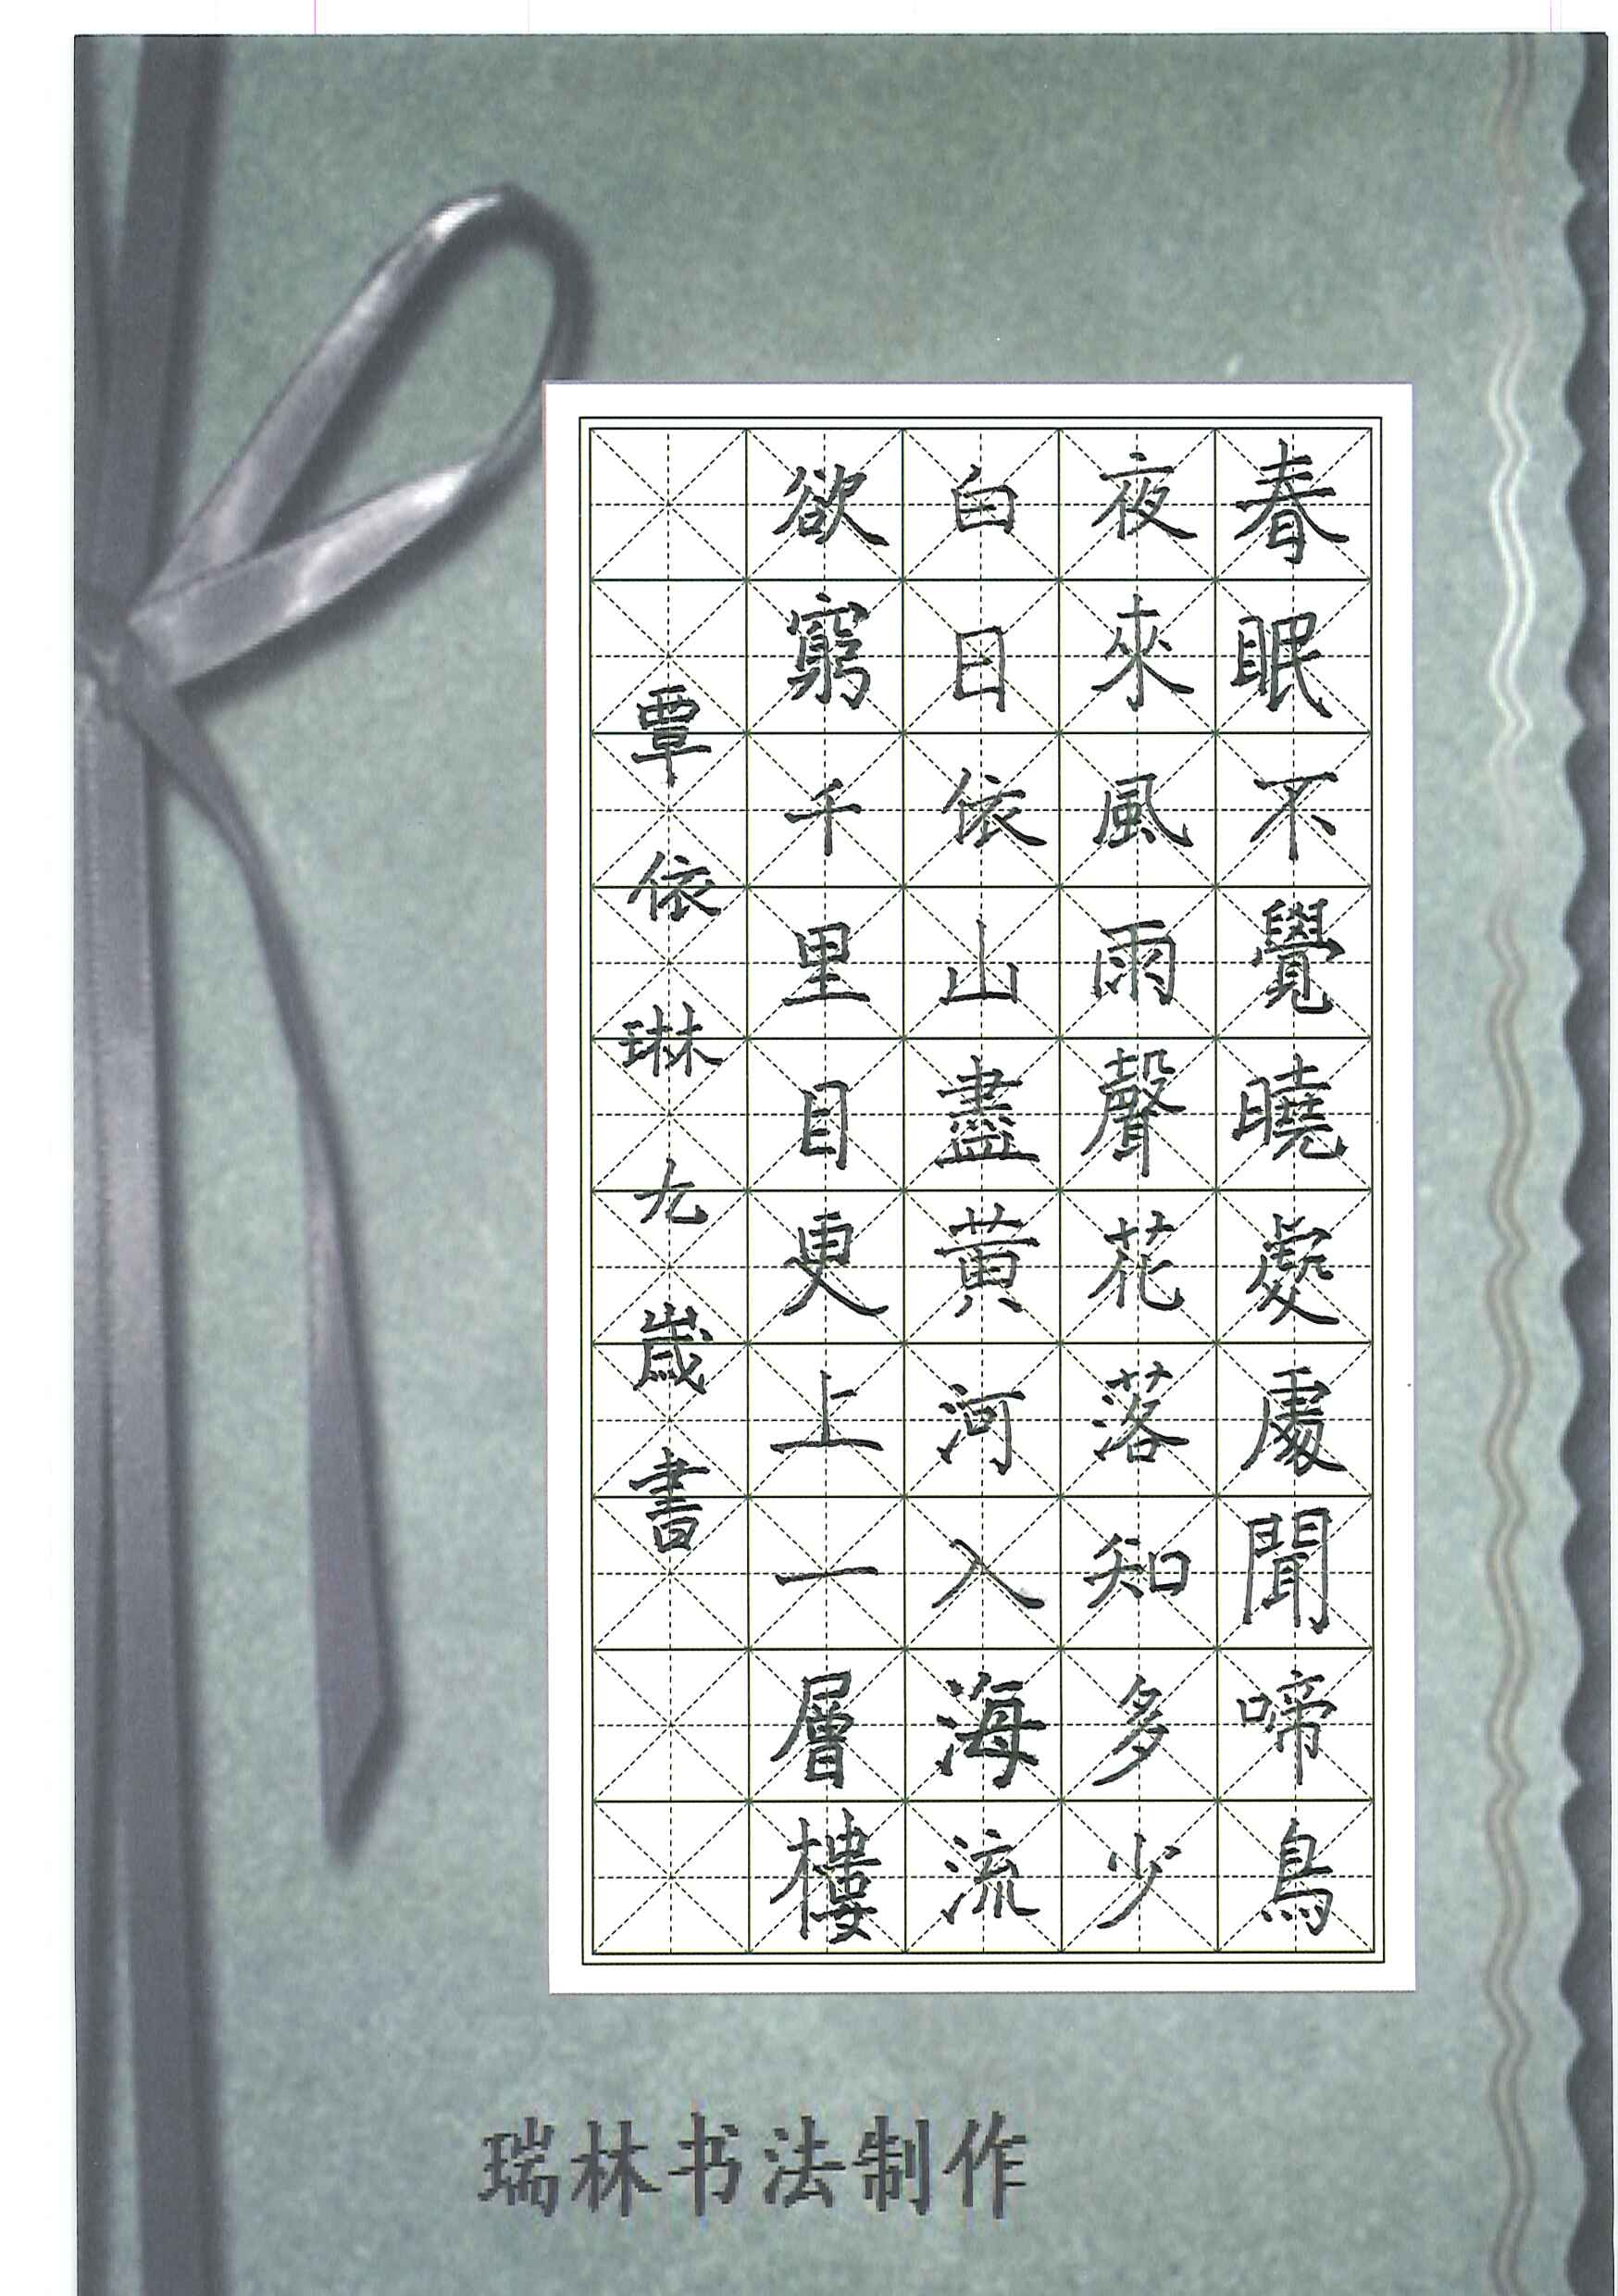 春眠不覺曉處處聞啼鳥
夜來風雨聲花落知多少
白日依山盡黄河入海流
欲窮千里目更上一層樓
覃依琳九歲書
瑞林书法制作